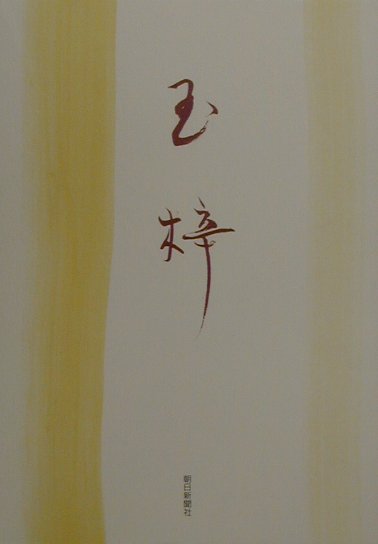 玉梓
朝日新聞社